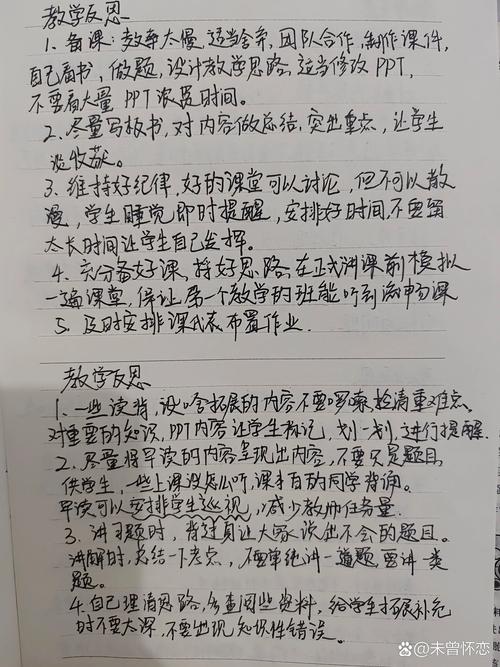 教学反思
1. 备课：效率太慢，适当舍弃，团队合作，制作课件，
自己看书，做题，设计教学思路，适当修改PPT，
不要看大量PPT浪费时间。
2. 尽量写板书，对内容做总结，突出重点，让学生
谈收获。
3. 维持好纪律，好的课堂可以讨论，但不可以散
漫，学生睡觉即时提醒，安排好时间，不要留
太长时间让学生自己发挥。
4. 充分备好课，捋好思路，在正式讲课前模拟
一遍课堂，保证第一个教学的班能听到流畅课
5. 及时安排课代表布置作业.
教学反思
1. 一些读背，没啥拓展的内容不要啰嗦，捡清重难点.
对重要的知识，PPT内容让学生标记，划一划，进行提醒.
2. 尽量将早读的内容呈现出内容，不要只是题目
供学生，一些上课没怎么听，课本空白的同学背诵。
早读可以安排学生巡视，减少教师任务量.
3. 讲习题时，背过身让大家说出不会的题目。
讲解时，总结一下考点，不要单纯讲一道题，要讲一类
题。
4. 自己理清思路，多查阅些资料，给学生拓展补充
时不要太深，不要出现知识性错误。
@未曾怀恋